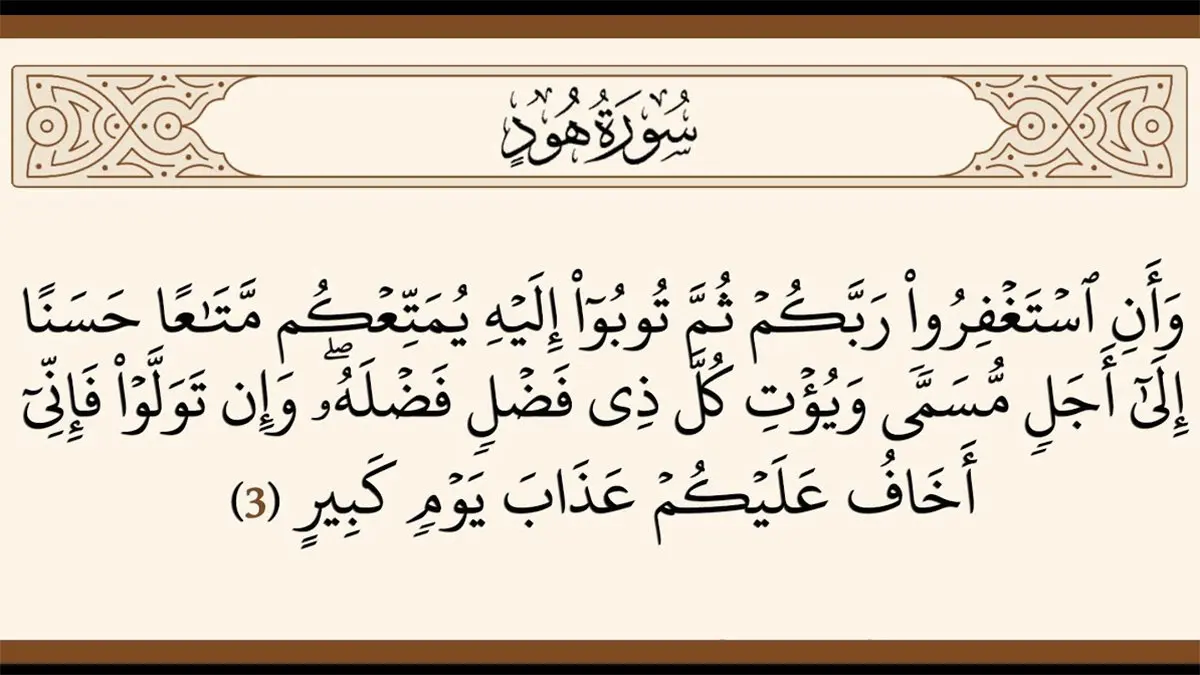 سُورَةُ هُودٍ
وَأَنِ ٱسۡتَغۡفِرُواْ رَبَّكُمۡ ثُمَّ تُوبُوٓاْ إِلَيۡهِ يُمَتِّعۡكُم مَّتَٰعًا حَسَنًا
إِلَىٰٓ أَجَلٖ مُّسَمّٗى وَيُؤۡتِ كُلَّ ذِي فَضۡلٖ فَضۡلَهُۥۖ وَإِن تَوَلَّوۡاْ فَإِنِّيٓ
أَخَافُ عَلَيۡكُمۡ عَذَابَ يَوۡمٖ كَبِيرٍ (3)